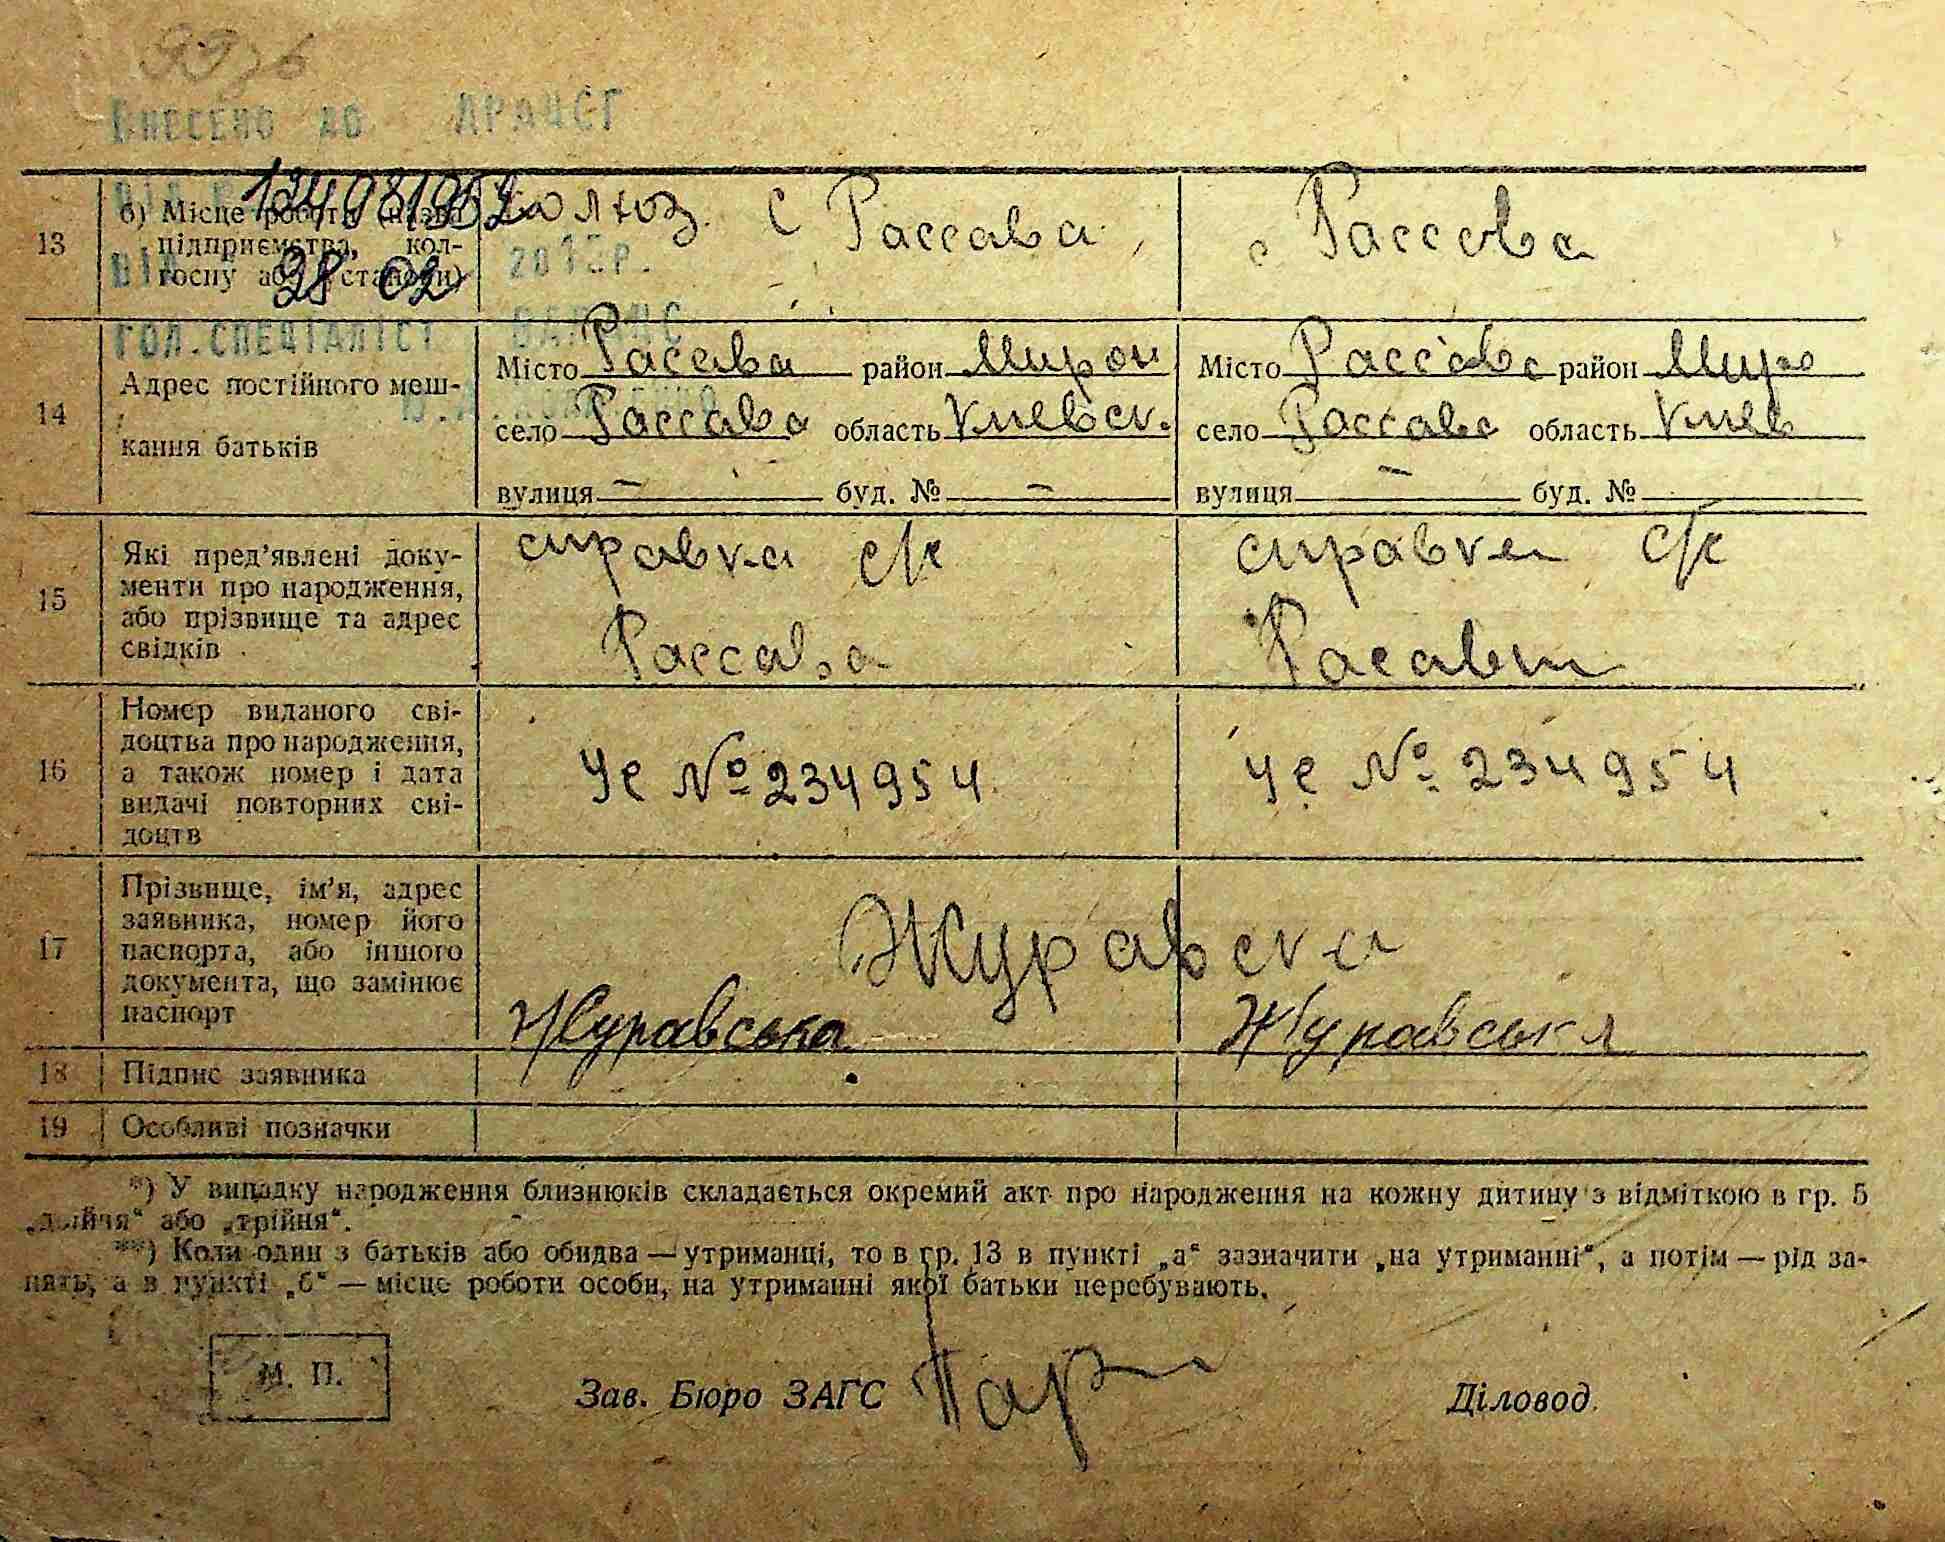 Внесено до ДРАЦСГ
13 б) Місце роботи (назва підприємства, колгоспу або установи) с Рассава с Рассова
1249081952
28 02 2013р.
гол.спеціаліст
14 Адрес постійного мешкання батьків
Місто Расава район Мирон Місто Рассава район Миро
село Рассава область Киевск. село Рассава область Киев
вулиця — буд. № — вулиця — буд. №
15 Які пред'явлені документи про народження, або прізвище та адрес свідків
справка с/к справка с/к
Рассава Расавт
16 Номер виданого свідоцтва про народження, а також номер і дата видачі повторних свідоцтв
Че № 234954 Че № 234954
17 Прізвище, ім'я, адрес заявника, номер його паспорта, або іншого документа, що замінює паспорт
Журавска
Журавська Журавська
18 Підпис заявника
19 Особливі позначки
*) У випадку народження близнюків складається окремий акт про народження на кожну дитину з відміткою в гр. 5
„двійня“ або „трійня“.
**) Коли один з батьків або обидва — утриманці, то в гр. 13 в пункті „а“ зазначити „на утриманні“, а потім — рід за-
нять, а в пункті „б“ — місце роботи особи, на утриманні якої батьки перебувають.
М. П. Зав. Бюро ЗАГС Діловод